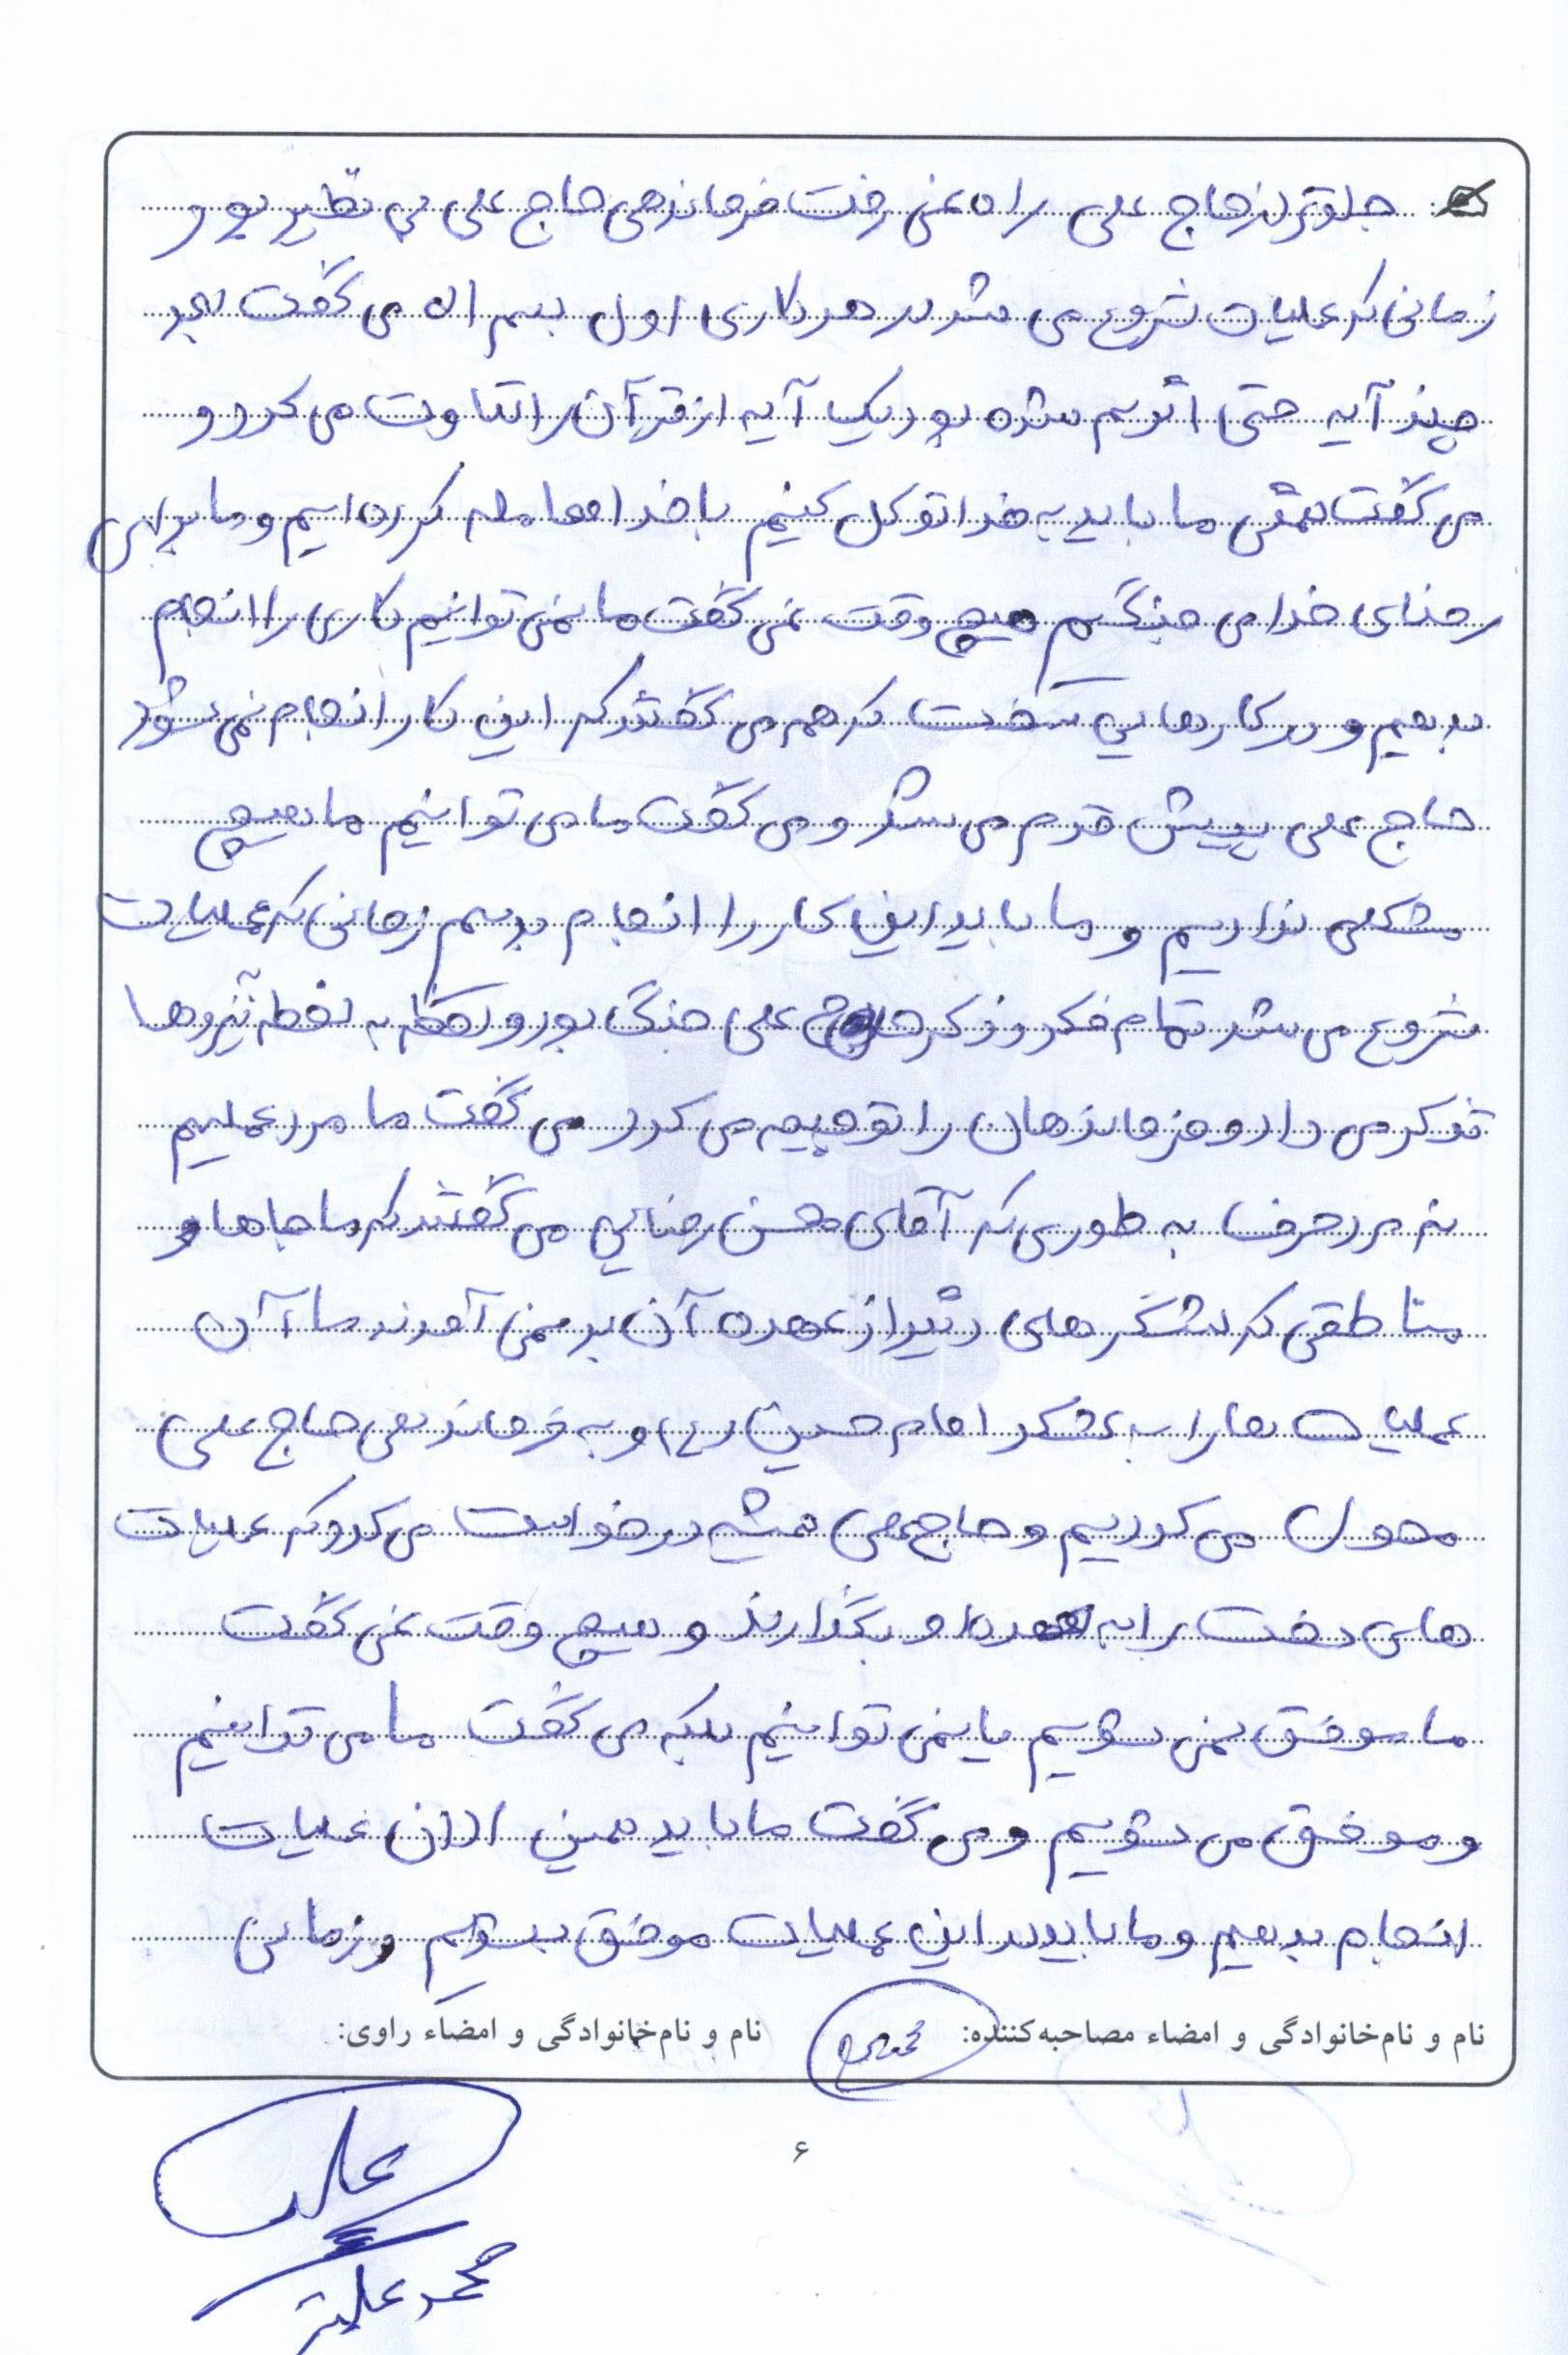 جلوتر از حاج علی راه نمی رفت فرماندهی حاج علی بی نظیر بود و
زمانی که عملیات شروع می شد در هر کاری اول بسم اله می گفت بعد
چند آیه حتی اگر هم شده بود یک آیه از قرآن را تلاوت می کرد و
می گفت همگی ما باید به خدا توکل کنیم با خدا معامله کرده ایم و ما برای
رضای خدا می جنگیم هیچ وقت نمی گفت ما نمی توانیم کاری را انجام
بدهیم و در کارهایی سخت که همه می گفتند که این کار انجام نمی شود
حاج علی پیش قدم می شد و می گفت ما می توانیم ما هیچ
مشکلی نداریم و ما باید این کار را انجام بدهیم زمانی که عملیات
شروع می شد تمام فکر و ذکر حاج علی جنگ بود و لحظه به لحظه نیروها
تذکر می داد و فرماندهان را توجیه می کرد می گفت ما مرد عملیم
نه مرد حرف به طوری که آقای محسن رضایی می گفتند که ما جاها و
مناطقی که لشگرهای دیگر از عهده آن بر نمی آمدند ما آن
عملیات ها را به لشکر امام حسین (ع) و به فرماندهی حاج علی
محول می کردیم و حاج علی همیشه درخواست می کرد که عملیات
های سخت را به عهده او بگذارند و هیچ وقت نمی گفت
ما موفق نمی شویم یا نمی توانیم بلکه می گفت ما می توانیم
و موفق می شویم و می گفت ما باید همین الان عملیات
انجام بدهیم و ما باید در این عملیات موفق بشویم و زمانی
نام و نام‌خانوادگی و امضاء مصاحبه‌کننده: نام و نام‌خانوادگی و امضاء راوی:
۶